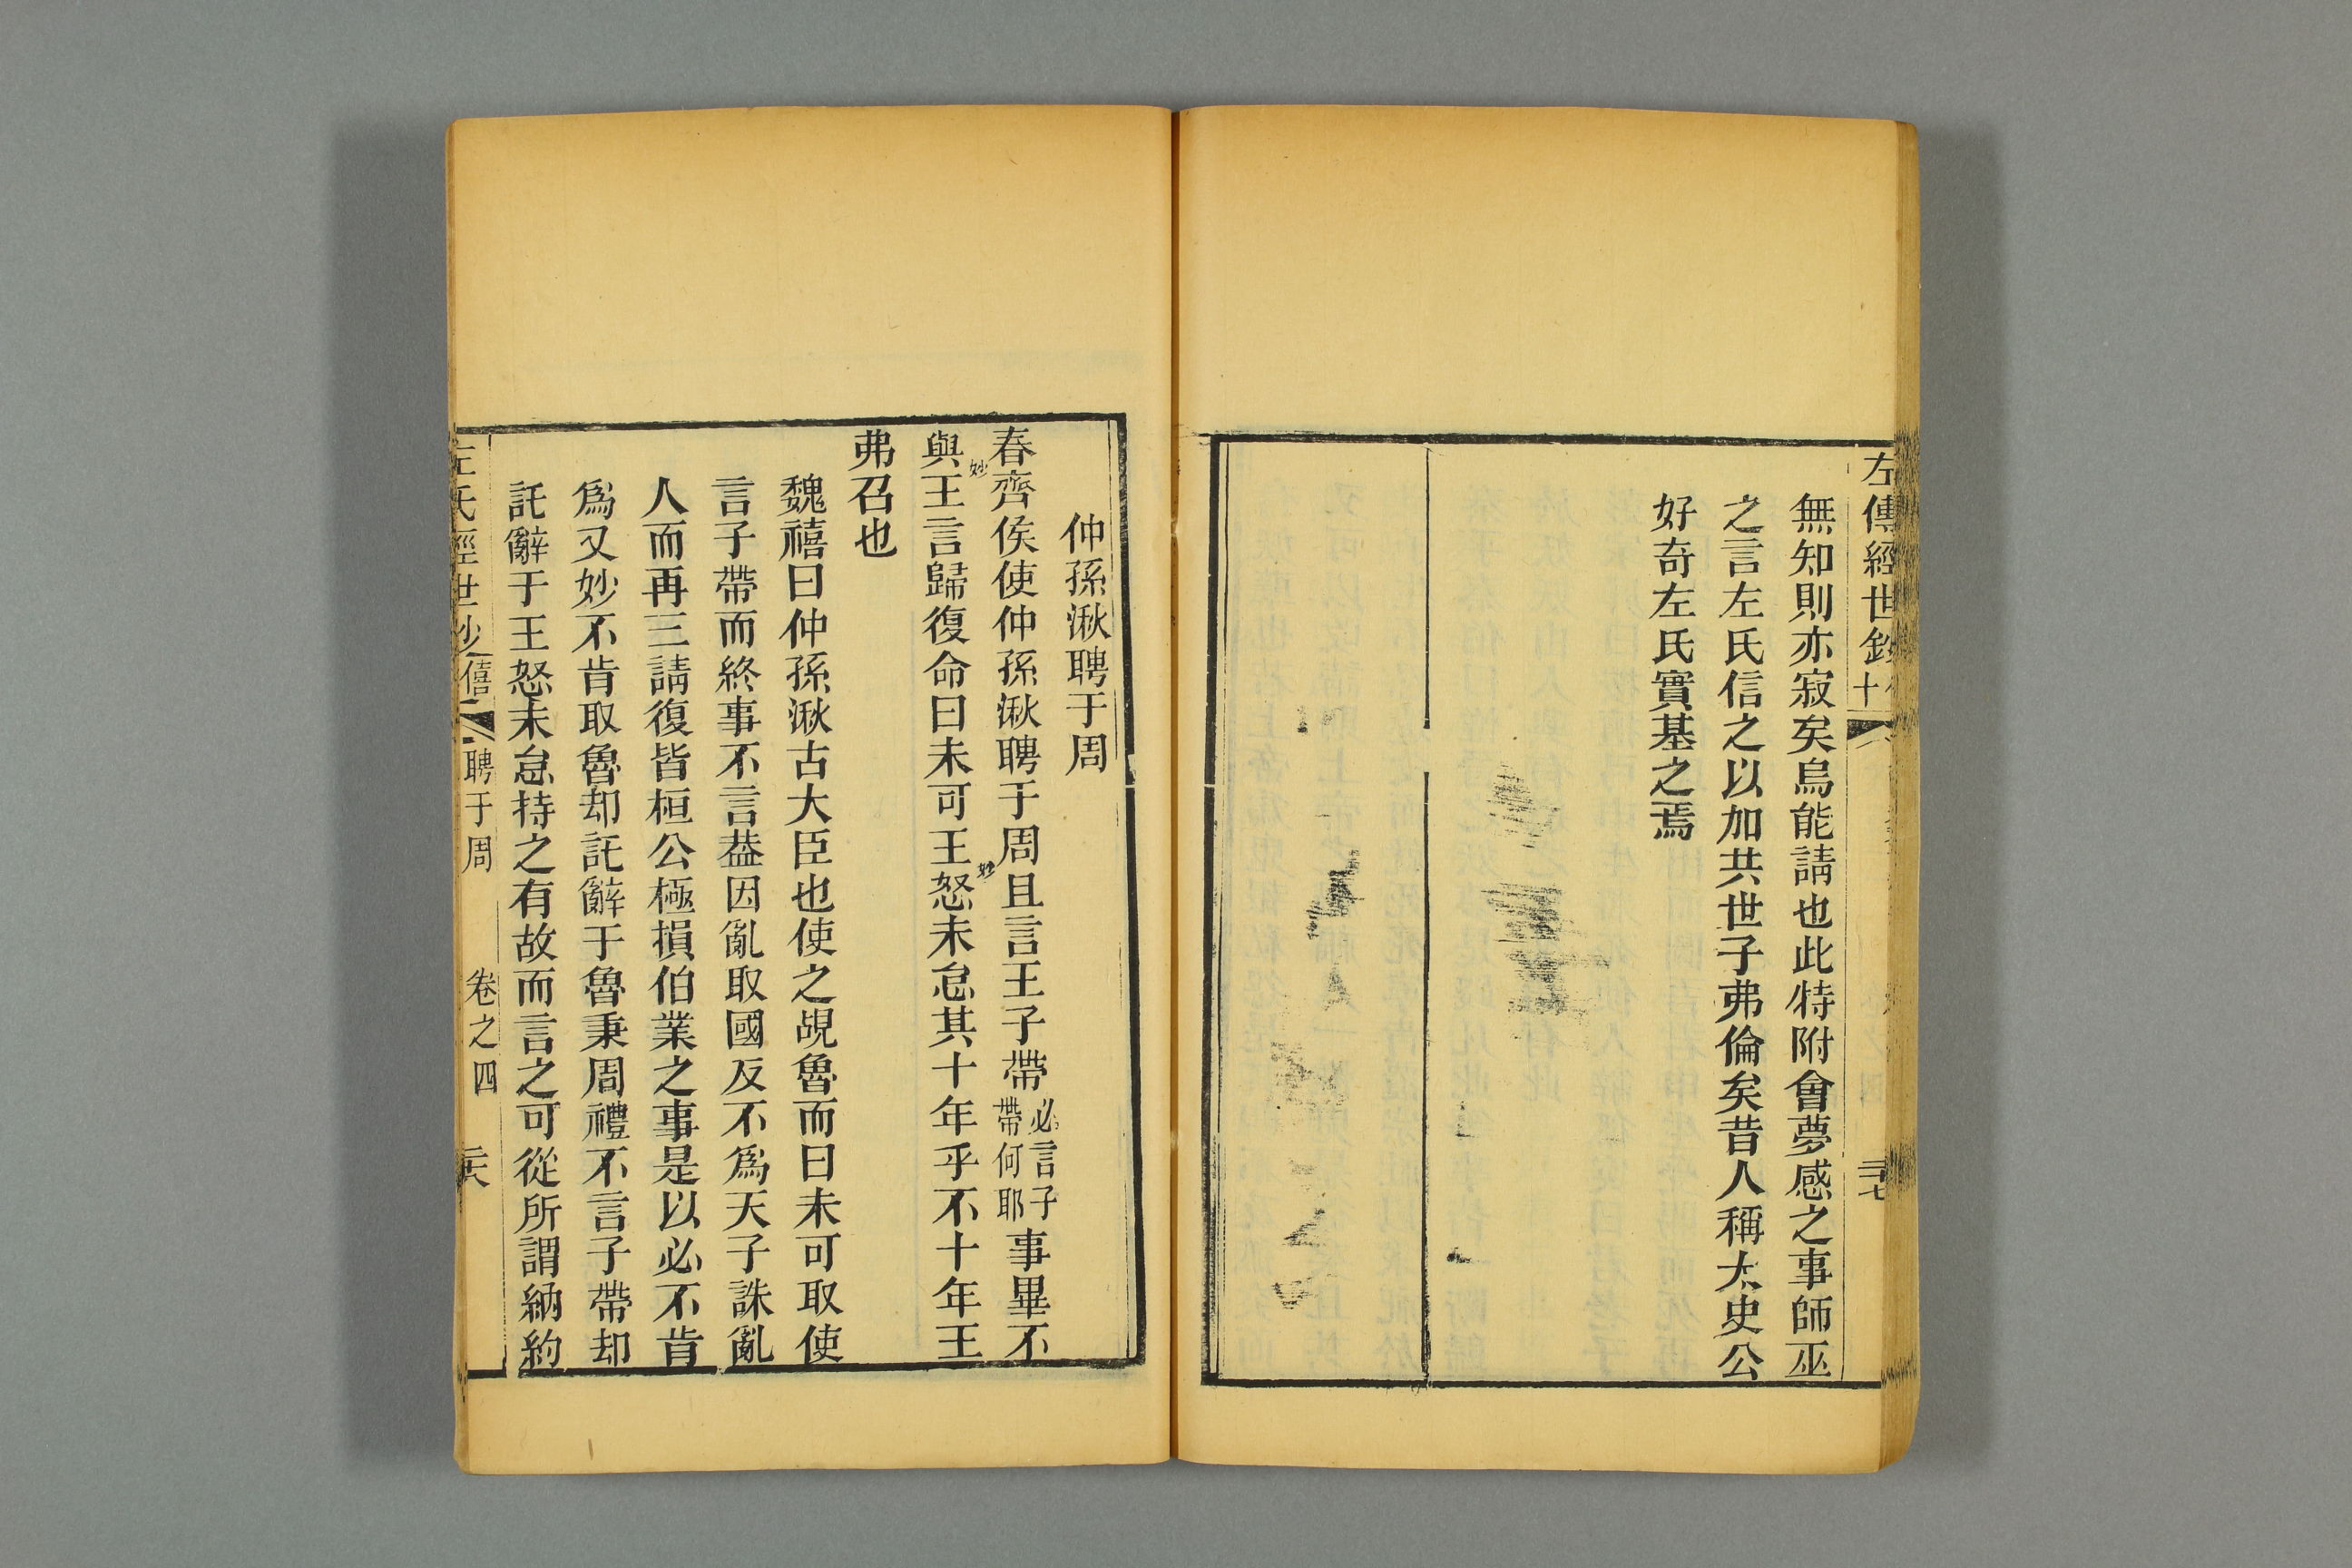 左傳經世鈔
十
三十七
無知則亦寂矣烏能請也此特附會夢感之事師巫
之言左氏信之以加共世子弗倫矣昔人稱太史公
好奇左氏實基之焉
仲孫湫聘于周
春齊侯使仲孫湫聘于周且言王子帶必言子帶何耶事畢不
與王言歸復命曰未可王怒未怠其十年乎不十年王
妙
妙
弗召也
魏禧曰仲孫湫古大臣也使之覘魯而曰未可取使
言子帶而終事不言葢因亂取國反不爲天子誅亂
人而再三請復皆桓公極損伯業之事是以必不肯
爲又妙不肯取魯却託辭于魯秉周禮不言子帶却
託辭于王怒未怠持之有故而言之可從所謂納約
左氏經世鈔
僖
聘于周
卷之四